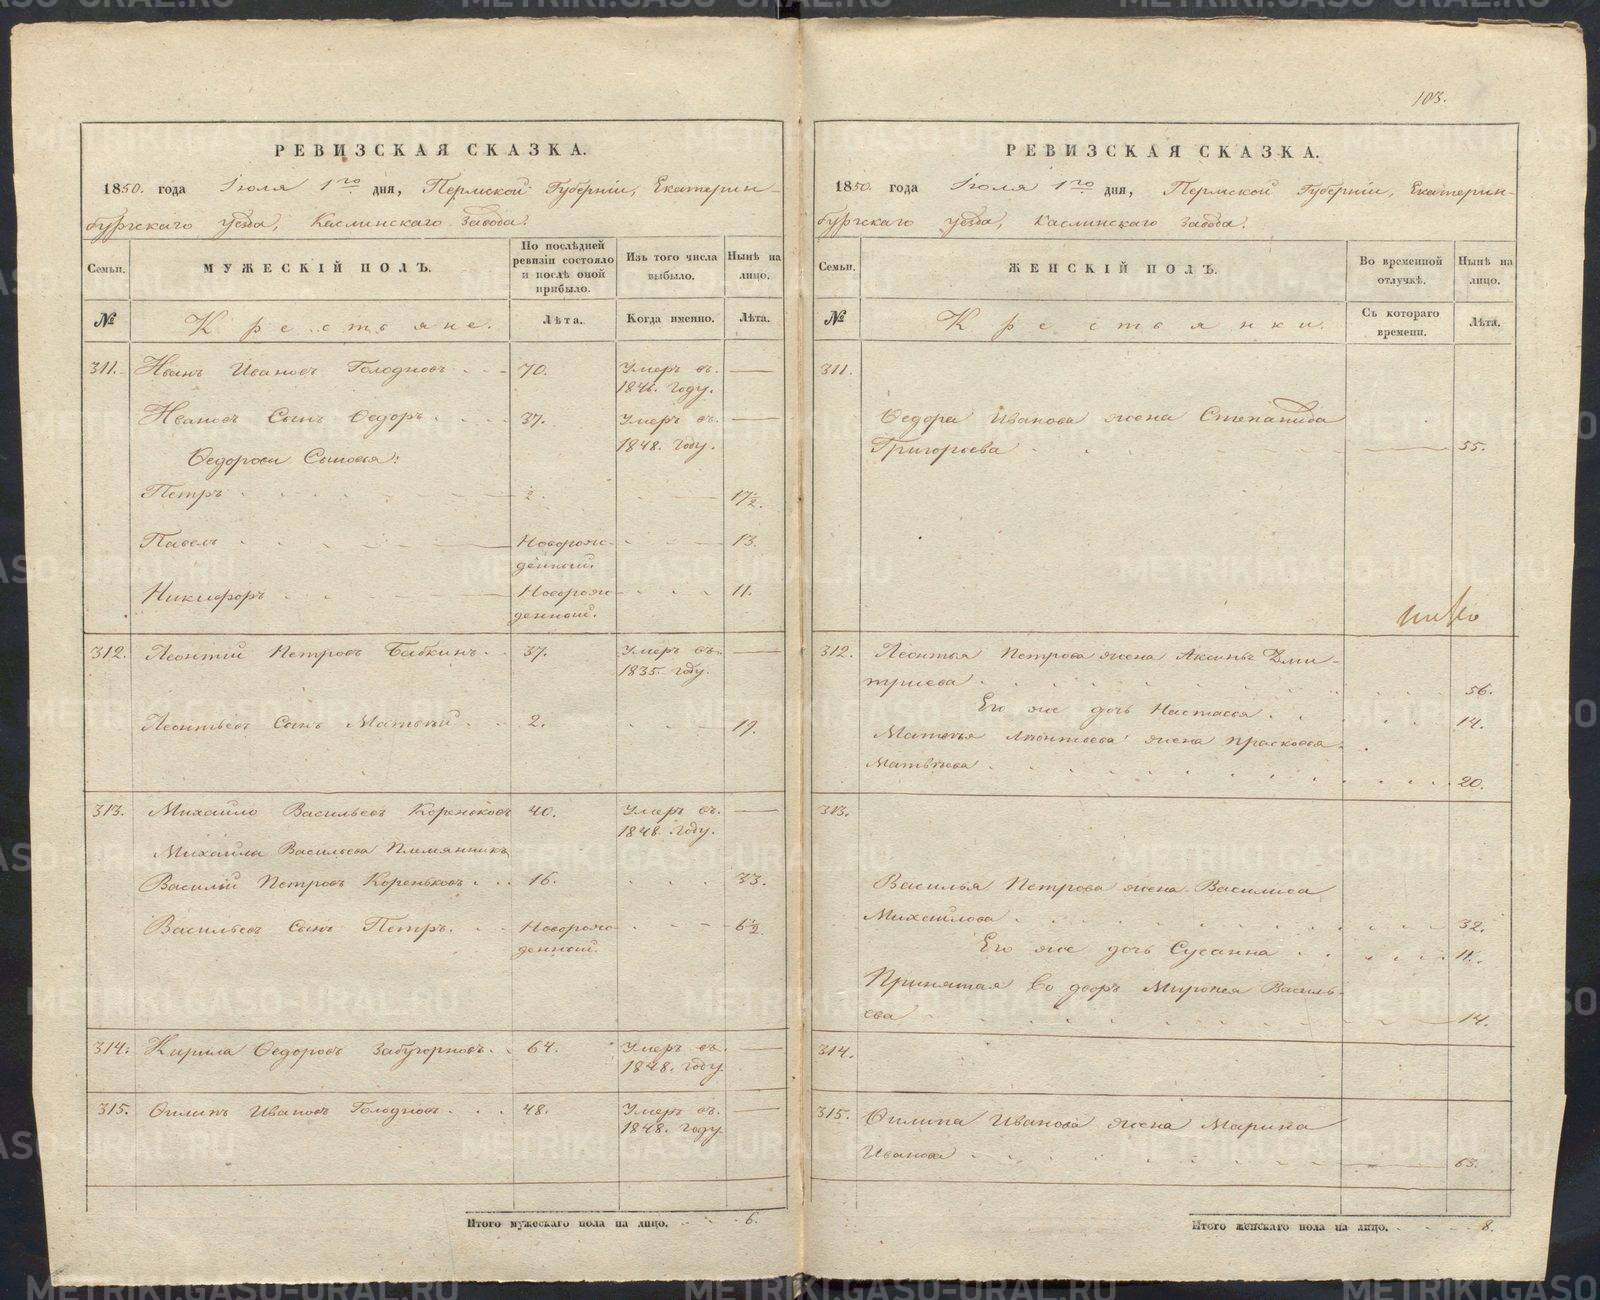 103.
РЕВИЗСКАЯ СКАЗКА.
1850. года Іюля 1го дня, Пермской Губерніи, Екатерин-
бургскаго уезда, Каслинскаго Завода.
Семьи. МУЖЕСКІЙ ПОЛЪ. По послѣдней ревизіи состояло и послѣ оной прибыло. Изъ того числа выбыло. Нынѣ на лицо.
№ Крестьяне. Лѣта. Когда именно. Лѣта.
311. Иванъ Ивановъ Голодновъ 70. Умеръ въ —
1846. году.
Ивановъ Сынъ Ѳедоръ 37. Умеръ въ —
1848. году.
Ѳедоровы Сыновья:
Петръ 2. 17½.
Павелъ Новорож- 13.
денный.
Никифоръ Новорож- 11.
денный.
312. Леонтій Петровъ Бабкинъ 37. Умеръ въ —
1835. году.
Леонтьевъ Сынъ Матвей 2. 19.
313. Михайло Васильевъ Кореньковъ 40. Умеръ въ —
1848. году.
Михайла Васильева Племянникъ
Василій Петровъ Кореньковъ 16. 33.
Васильевъ Сынъ Петръ Новорож- 6½.
денный.
314. Кирила Ѳедоровъ Забугорновъ 64. Умеръ въ —
1848. году.
315. Филипъ Ивановъ Голодновъ 48. Умеръ въ —
1848. году.
Итого мужескаго пола на лицо. 6.
РЕВИЗСКАЯ СКАЗКА.
1850. года Іюля 1го дня, Пермской Губерніи, Екатерин-
бургскаго уезда, Каслинскаго Завода.
Семьи. ЖЕНСКІЙ ПОЛЪ. Во временной отлучкѣ. Нынѣ на лицо.
№ Крестьянки. Съ котораго времени. Лѣта.
311.
Ѳедора Иванова жена Степанида
Григорьева 55.
312. Леонтья Петрова жена Аксинья Дми-
тріева 56.
Его же дочь Настасья 14.
Матвея Леонтьева жена Прасковья
Матвѣева 20.
313.
Василья Петрова жена Василиса
Михайлова 32.
Его же дочь Сусанна 11.
Принятая во дворъ Миропея Василь-
ева 14.
314.
315. Филипа Иванова жена Марина
Иванова 63.
Итого женскаго пола на лицо. 8.
METRIKI.GASO-URAL.RU